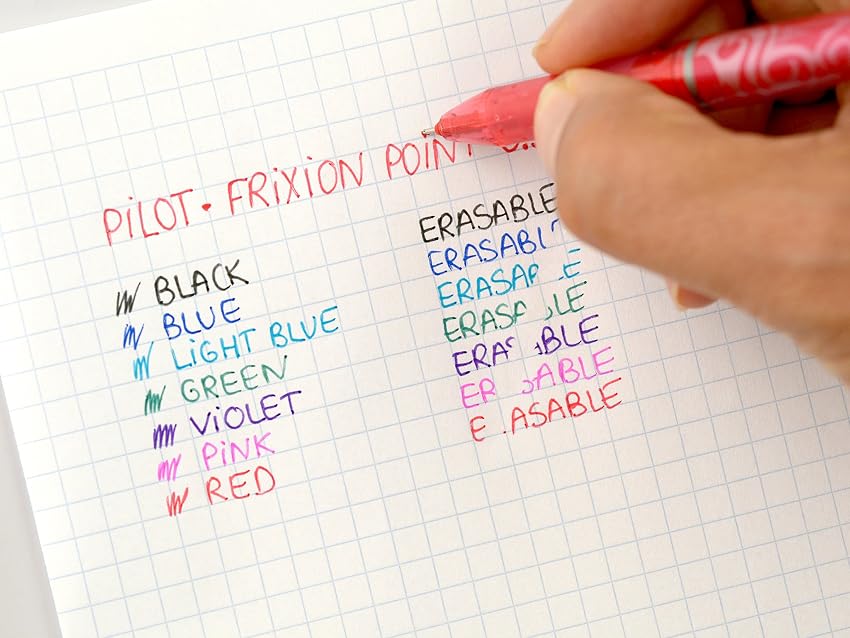 PiLOT · FRiXiON POiN
BLACK
BLUE
LiGHT BLUE
GREEN
ViOLET
PiNK
RED
ERASABLE
ERASABL
ERASA E
ERAS LE
ERA BLE
ER ABLE
E ASABLE